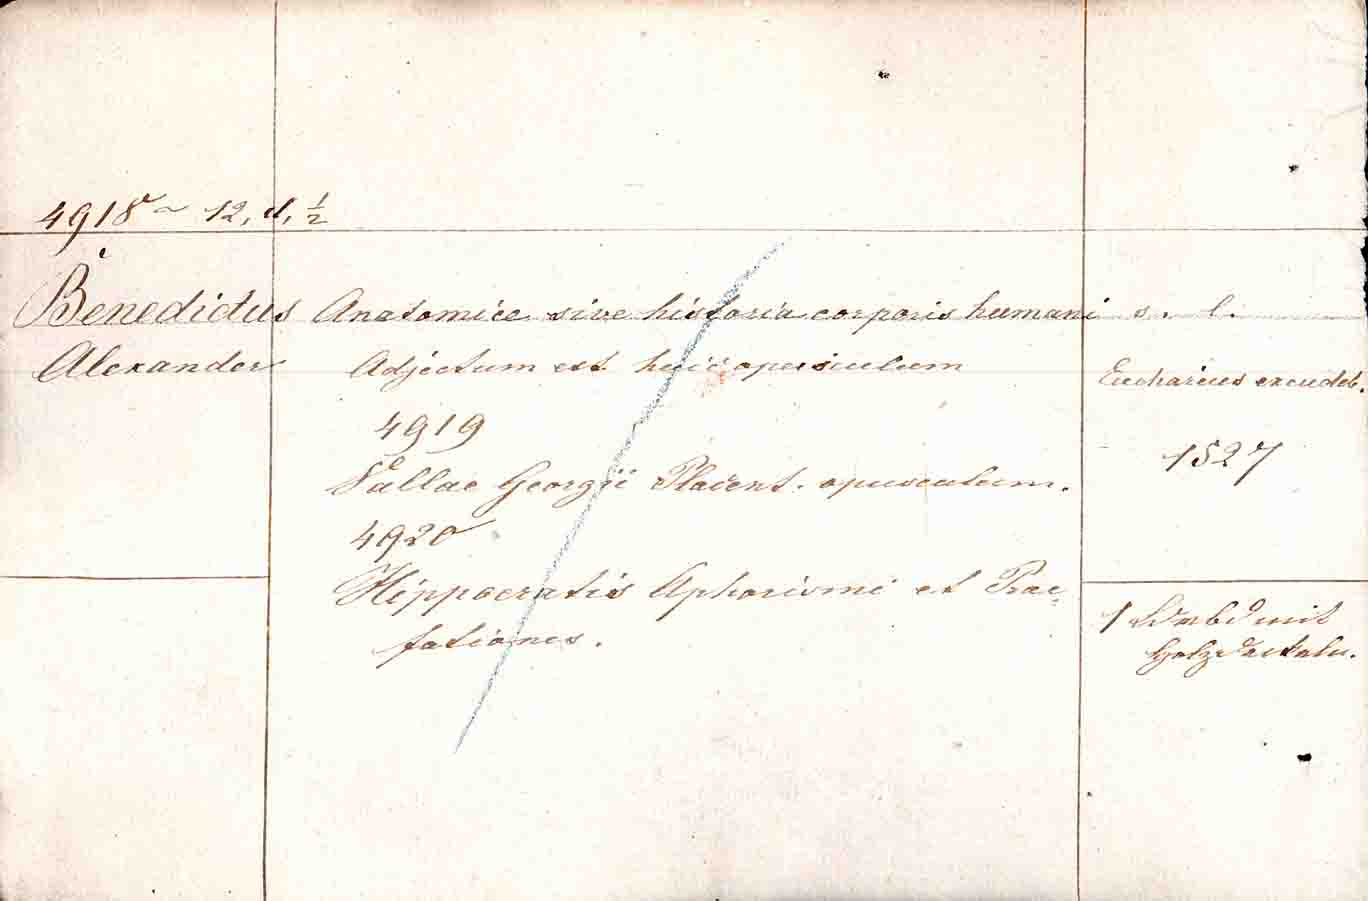 4918 ~ 12, d, 1/2
Benedictus Anatomice sive historia corporis humani s. l.
Alexander Adjectum est huic opusculum
Eucharius excudeb.
4919
1527
Vallae Georgii Placent. opusculum.
4920
Hippocratis Aphorismi et Prae-
1 mit
fationes.